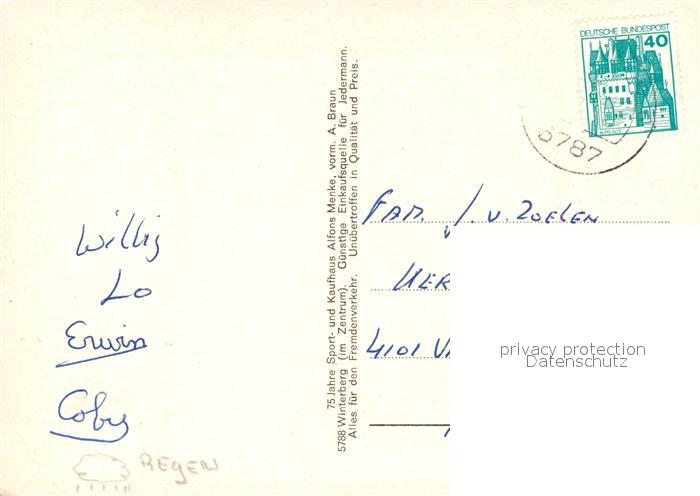 Willy
Lo
Erwin
Coby
REGEN
75 Jahre Sport- und Kaufhaus Alfons Menke, vorm. A. Braun
5788 Winterberg (im Zentrum). Günstige Einkaufsquelle für Jedermann.
Alles für den Fremdenverkehr. Unübertroffen in Qualität und Preis.
DEUTSCHE BUNDESPOST
40
BURG ELTZ
5787
FAM. J. v. ZOELEN
HER
4101 V
privacy protection
Datenschutz